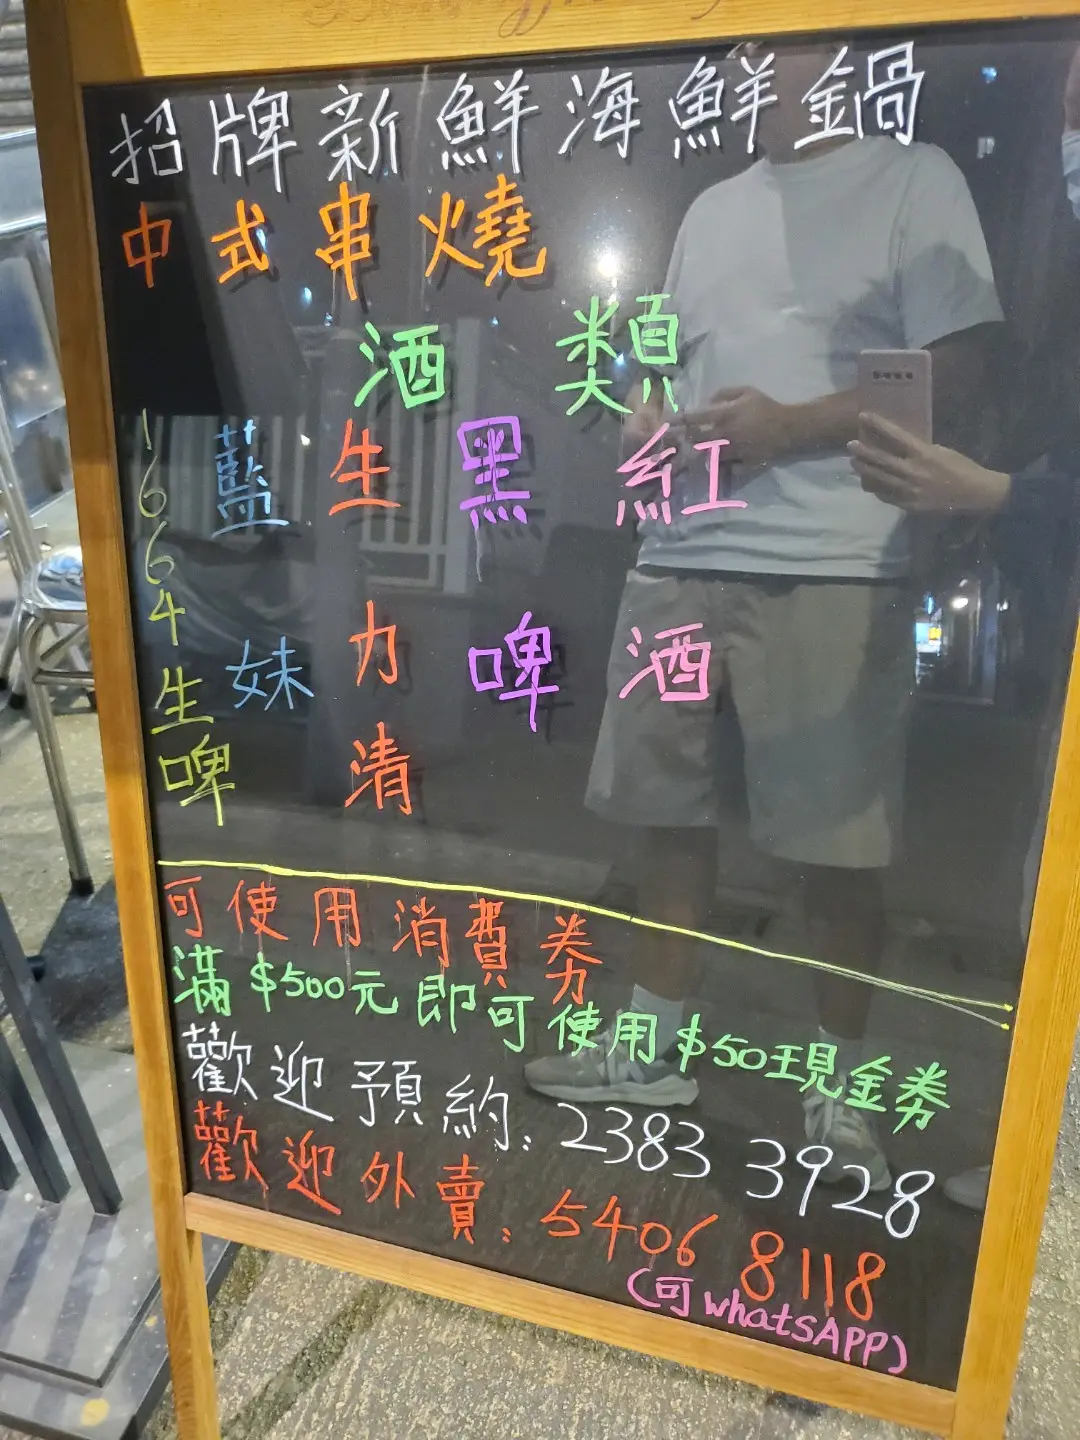 招牌新鮮海鮮鍋
中式串燒
酒類
1664生啤
藍妹
生力清
黑啤
紅酒
可使用消費券
滿$500元即可使用$50現金券
歡迎預約：2383 3928
歡迎外賣：5406 8118
(可whatsAPP)